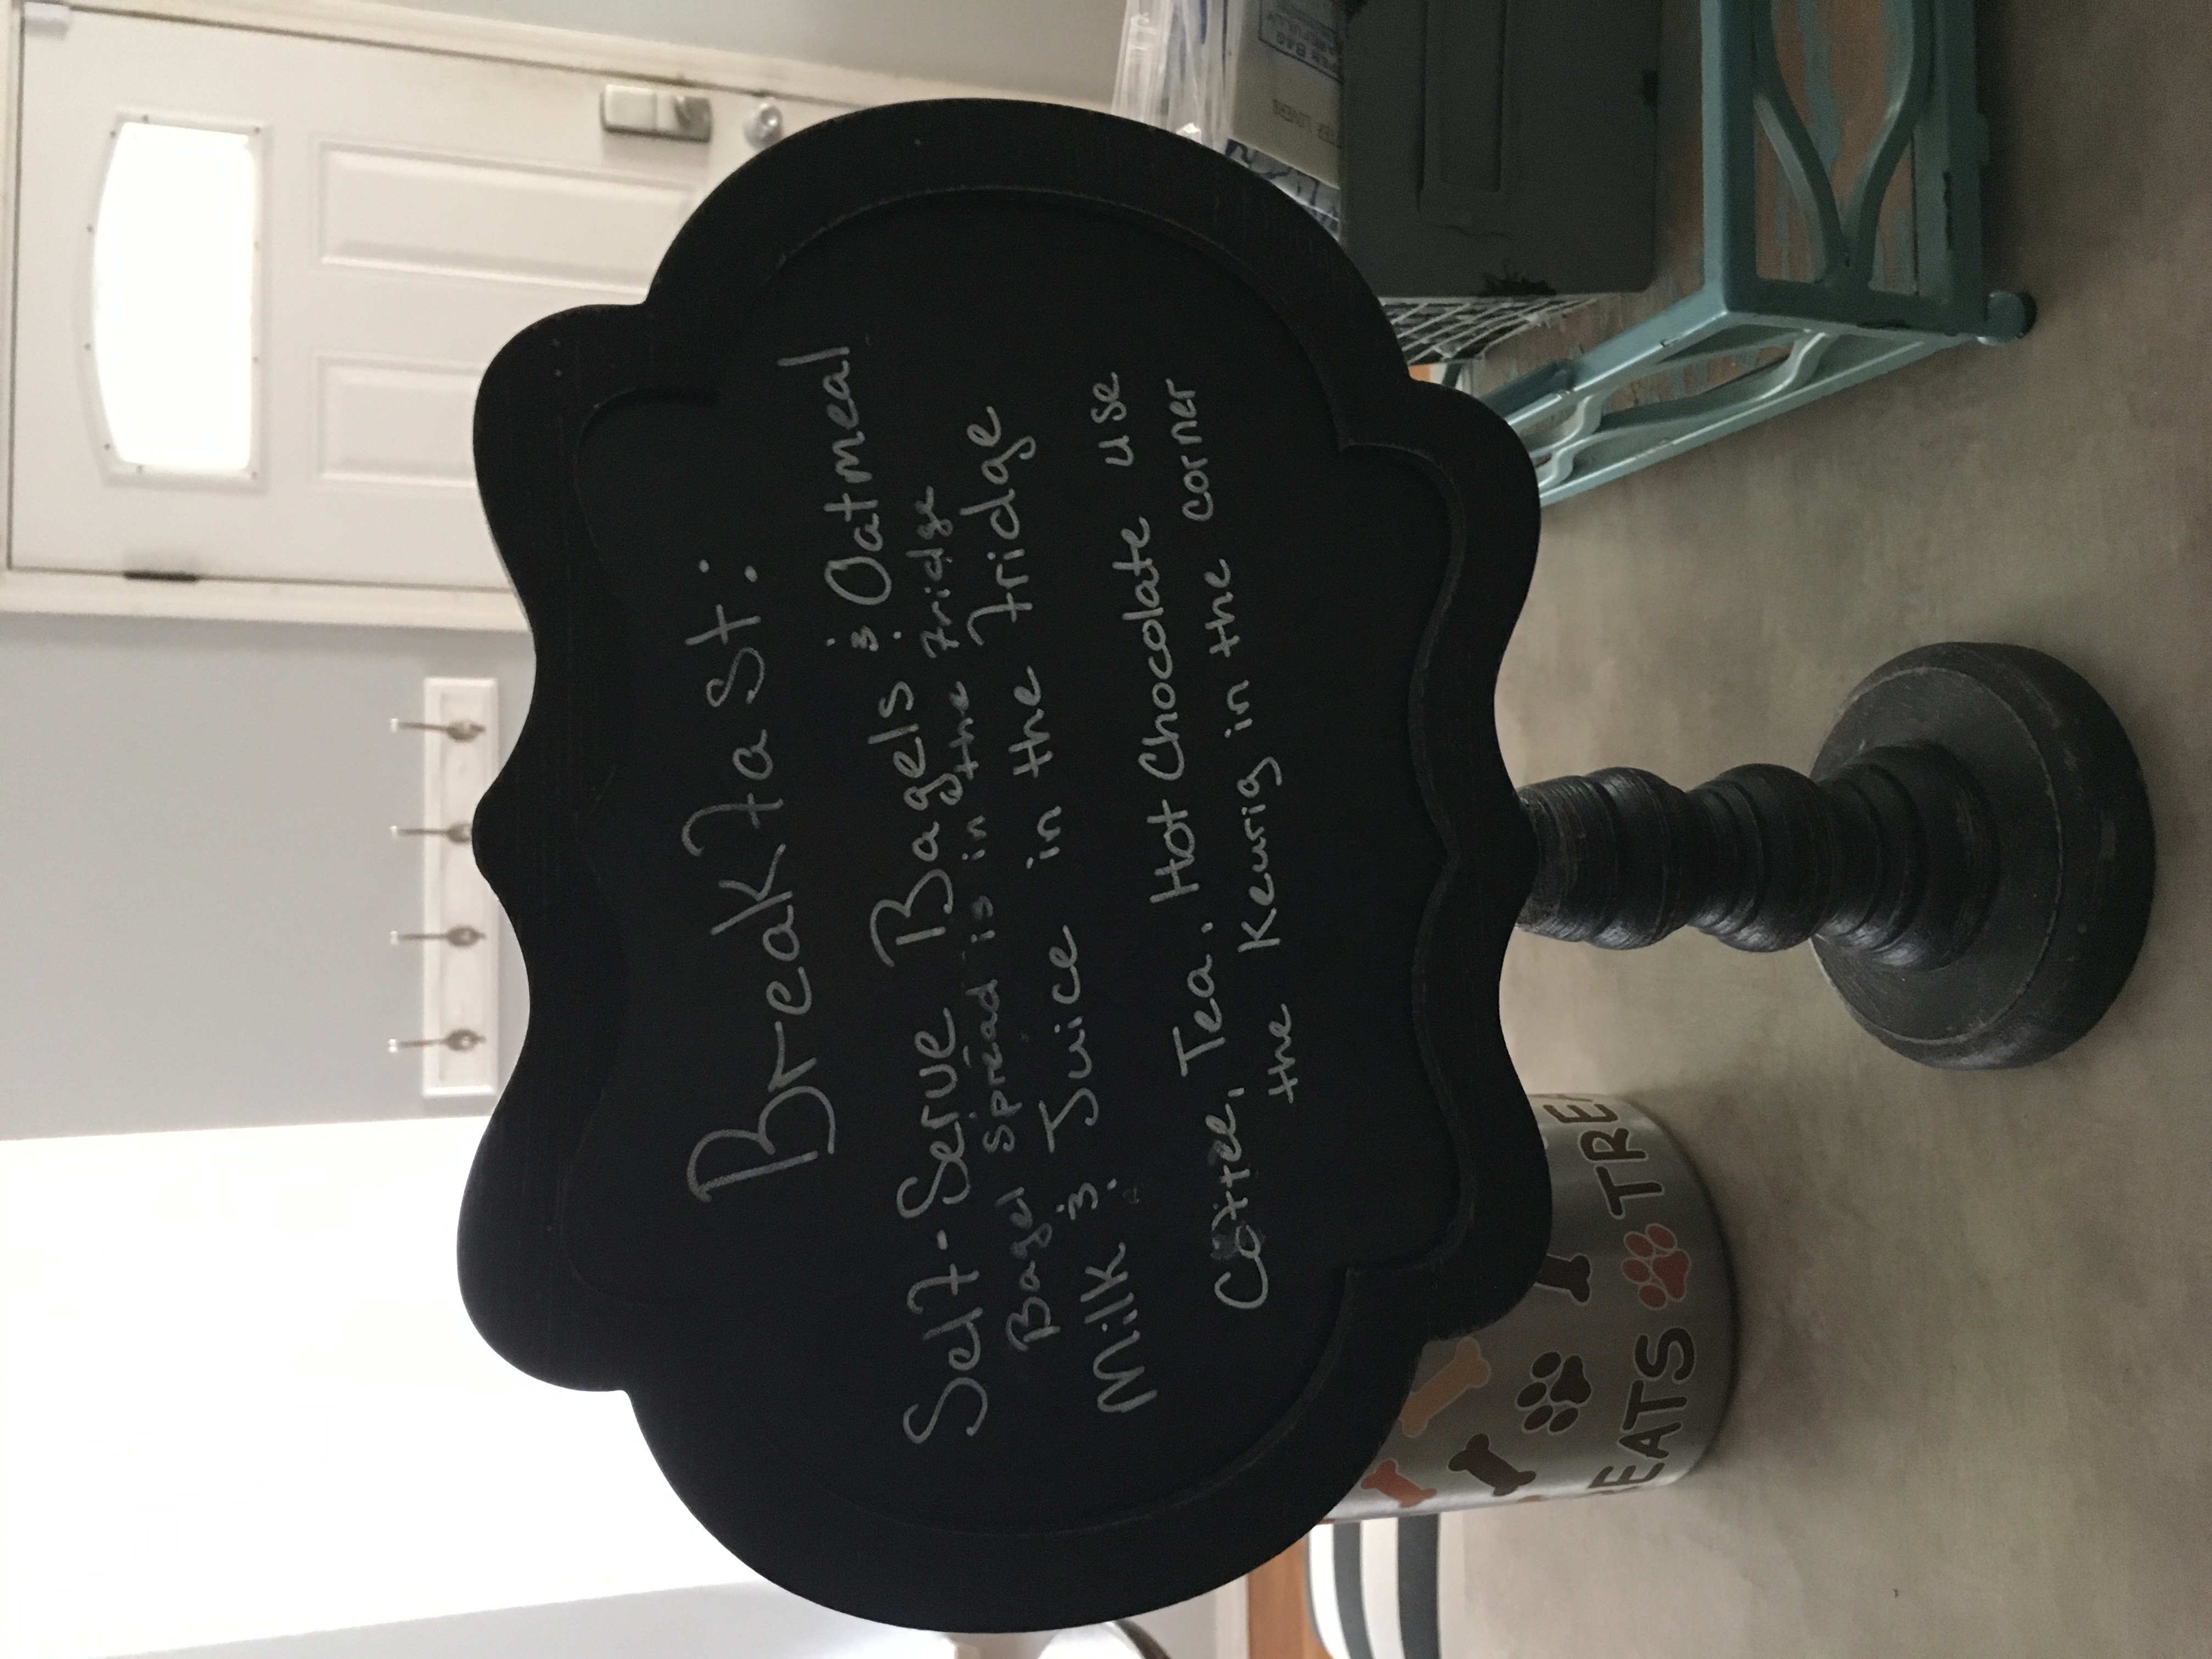 Breakfast:
Self-Serve Bagels & Oatmeal
Bagel Spread is in the fridge
Milk & Juice in the fridge
Coffee, Tea, Hot Chocolate use
the Keurig in the corner
EATS TREA
LOVERS
BAG